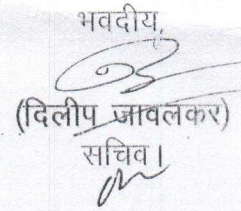 भवदीय,
(दिलीप जावलकर)
सचिव।